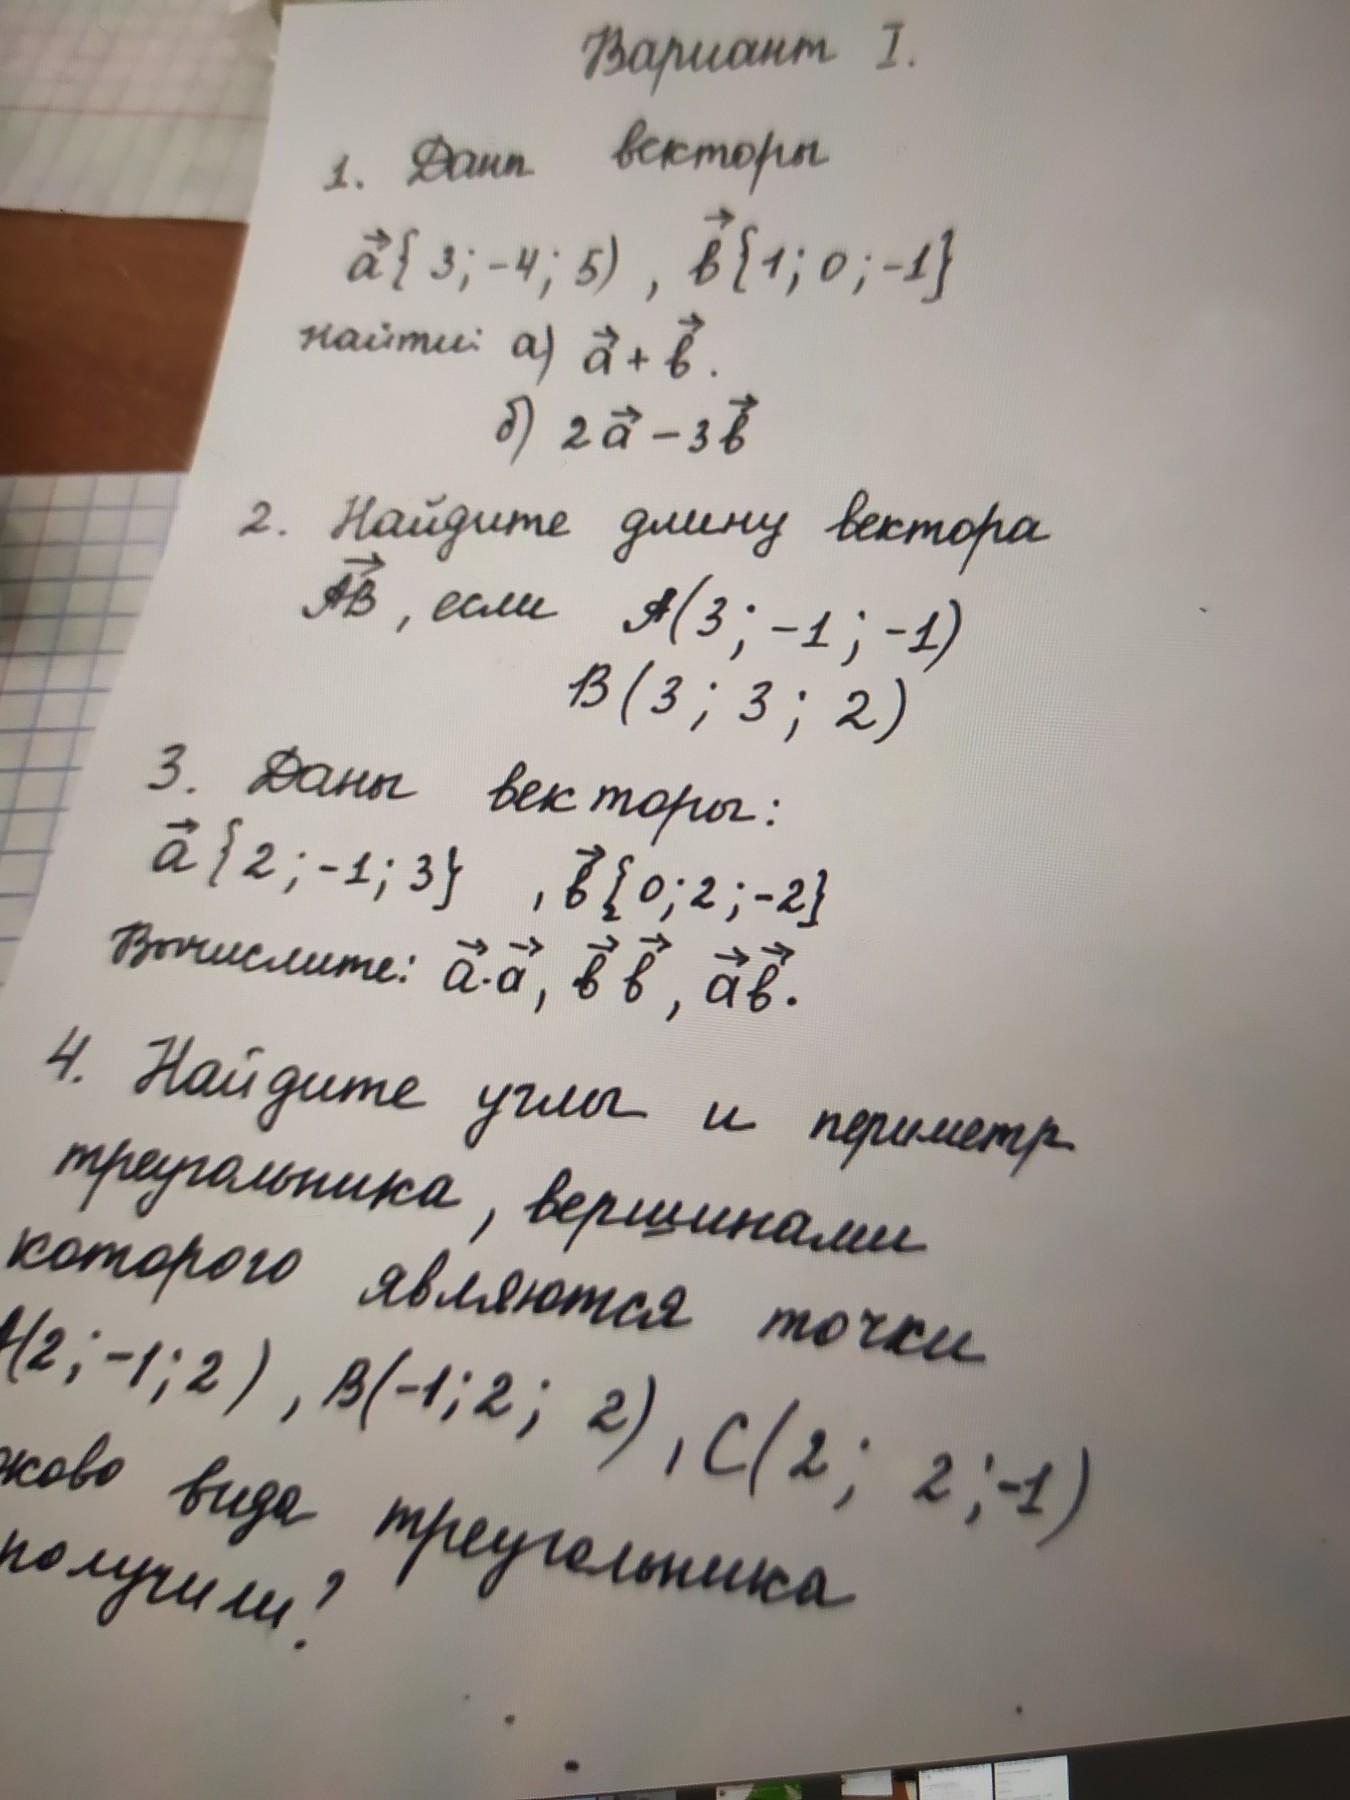 Вариант I.
1. Даны векторы
a⃗{3;-4;5), b⃗{1;0;-1}
найти: а) a⃗+b⃗.
б) 2a⃗-3b⃗
2. Найдите длину вектора
AB⃗, если A(3;-1;-1)
B(3;3;2)
3. Даны векторы:
a⃗{2;-1;3}, b⃗{0;2;-2}
Вычислите: a⃗·a⃗, b⃗b⃗, a⃗b⃗.
4. Найдите углы и периметр
треугольника, вершинами
которого являются точки
A(2;-1;2), B(-1;2; 2), C(2; 2;-1)
вида треугольника
получили?